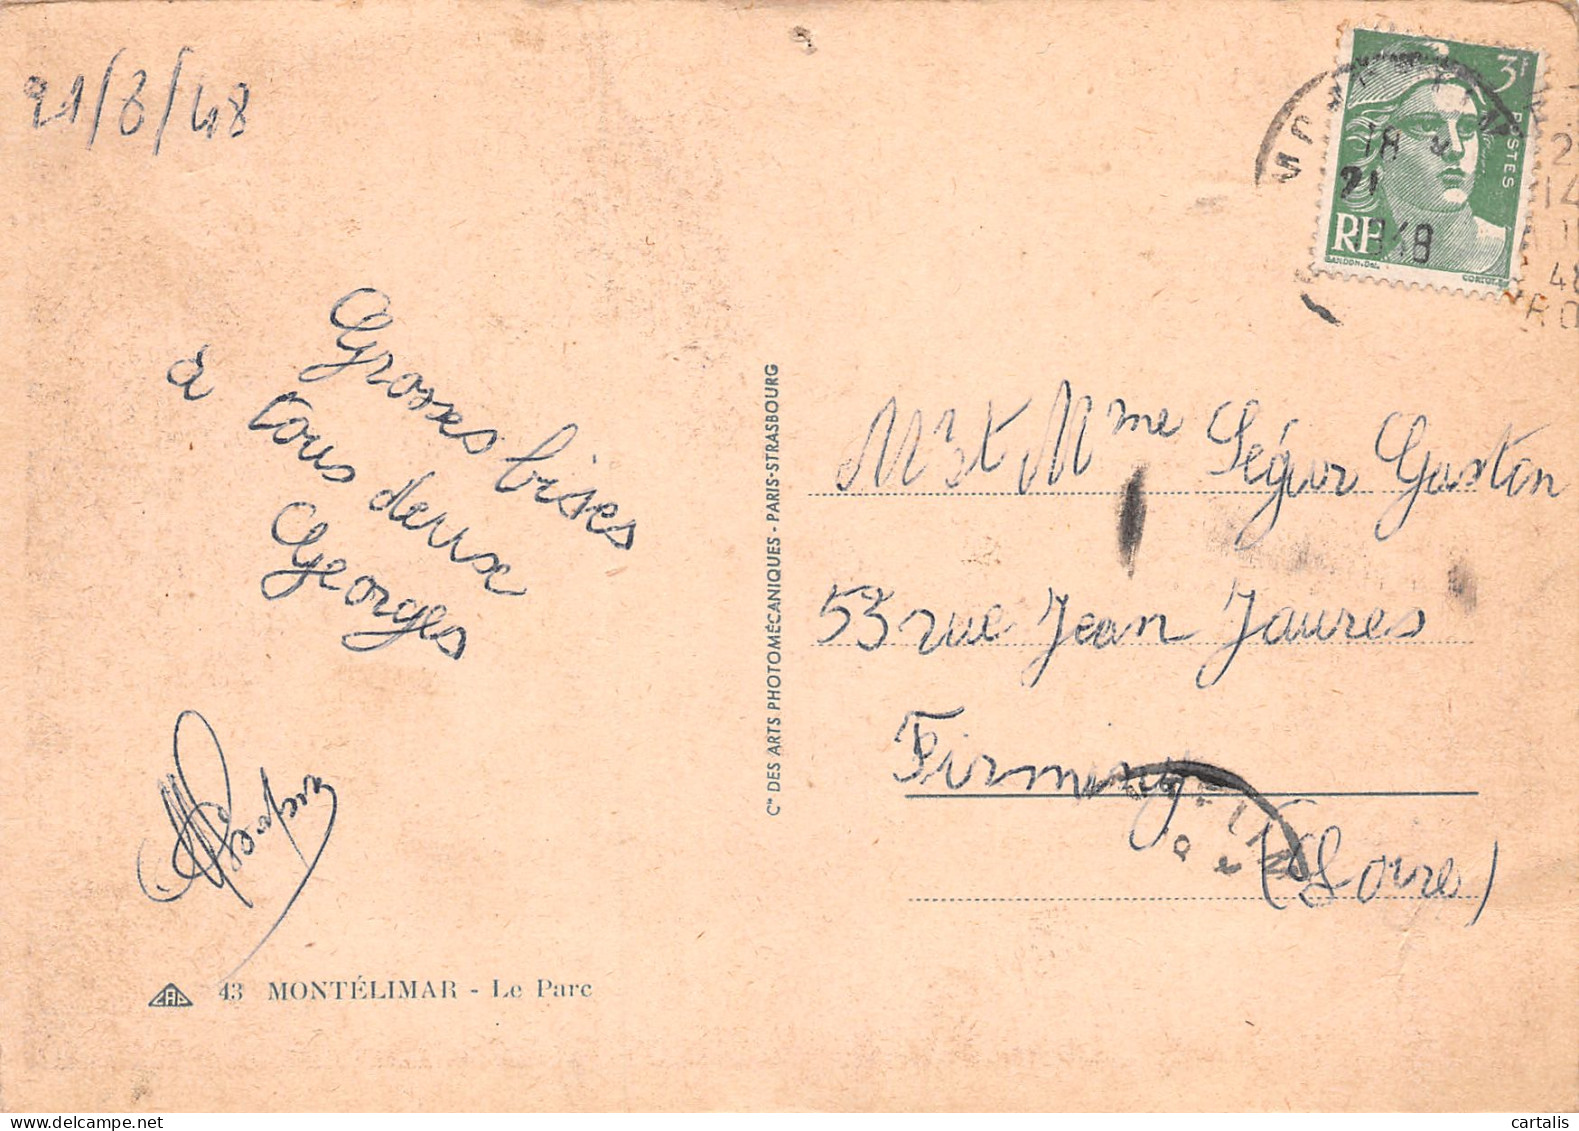 21/8/48
Grosses bises
à tous deux
Georges
43 MONTÉLIMAR - Le Parc
CAP
Cie DES ARTS PHOTOMÉCANIQUES - PARIS-STRASBOURG
3F
POSTES
RF
GANDON.Del.
18
21
1948
Mr et Mme Ségur Gaston
53 rue Jean Jaures
Firminy
(Loire)
cartalis